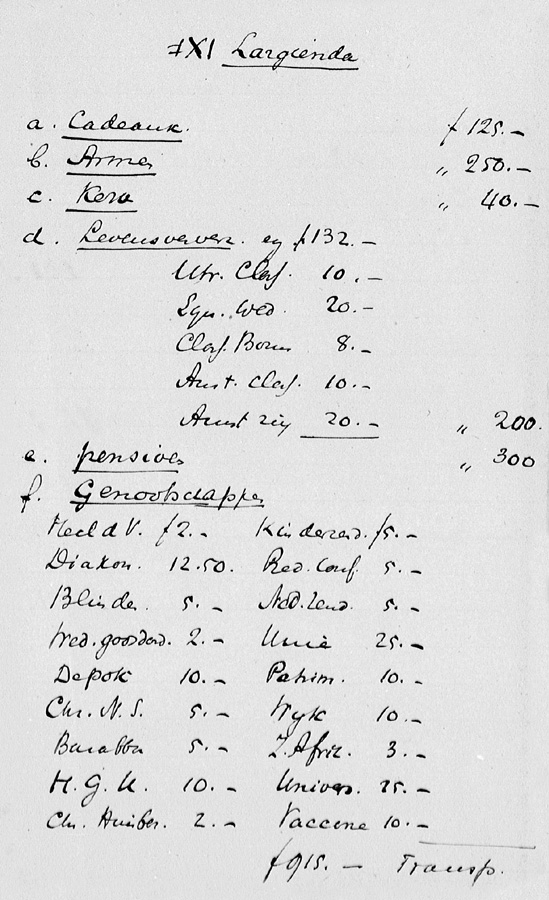 ‡XI Largienda
a. Cadeaux. f 125.-
b. Armen „ 250.-
c. Kerk „ 40.-
d. Levensverzek. eg f 132.-
Utr. Clas. 10.-
Equ. Wed. 20.-
Clas. Bonus 8.-
Amst. Clas. 10.-
Amst 20.- „ 200.
e. pensioen „ 300
f. Genootschappen
Held d V. f 2.- Kinderzend. f 5.-
Diakon. 12.50. Red. Conf. 5.-
Blinden. 5.- Ned. Zend. 5.-
Wed. goosdord. 2.- Unie 25.-
Depok 10.- Patrim. 10.-
Chr. N. S. 5.- Wyk 10.-
Barabba 5.- Z. Afric. 3.-
H. G. U. 10.- Univers. 25.-
Chr. 2.- Vaccine 10.-
f 915.- Transp.